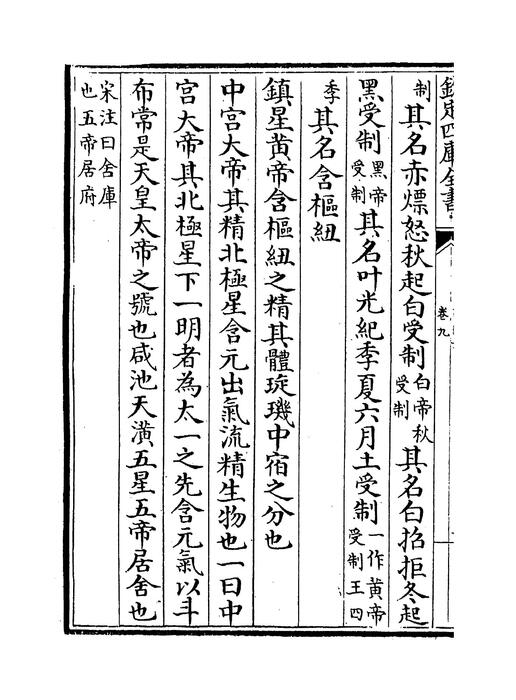 欽定四庫全書
卷九
制其名赤熛怒秋起白受制白帝秋受制其名白招拒冬起
黑受制黑帝受制其名叶光紀季夏六月土受制一作黄帝受制王四
季其名含樞紐
鎮星黄帝含樞紐之精其體琁璣中宿之分也
中宫大帝其精北極星含元出氣流精生物也一曰中
宫大帝其北極星下一明者為太一之先含元氣以斗
布常是天皇太帝之號也咸池天潢五星五帝居舍也
宋注曰舍庫也五帝居府